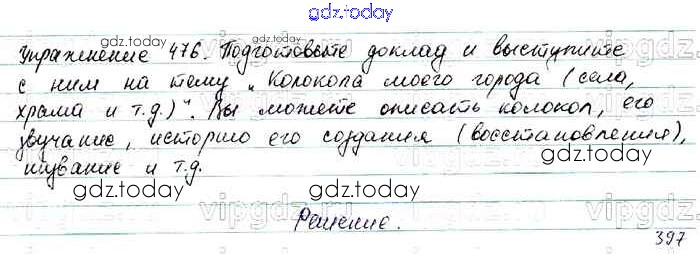 gdz.today
Упражнение 476. Подготовьте доклад и выступите
с ним на тему „Колокола моего города (села,
храма и т.д.)". Вы можете описать колокол, его
звучание, историю его создания (восстановления),
шувание и т.д.
Решение.
397
gdz.today
gdz.today
gdz.today
gdz.today
gdz.today
gdz.today
gdz.today
vipgdz